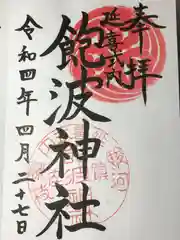 奉拝
延喜式内
飽波神社
令和四年四月二十七日